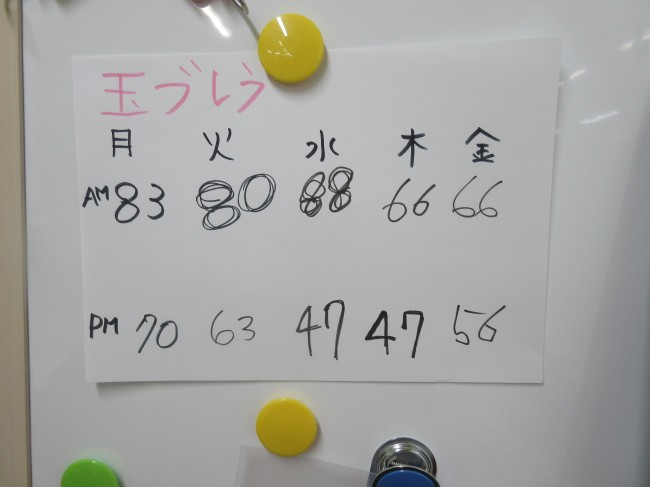 玉ブレラ
月 火 水 木 金
AM 83 80 88 66 66
PM 70 63 47 47 56